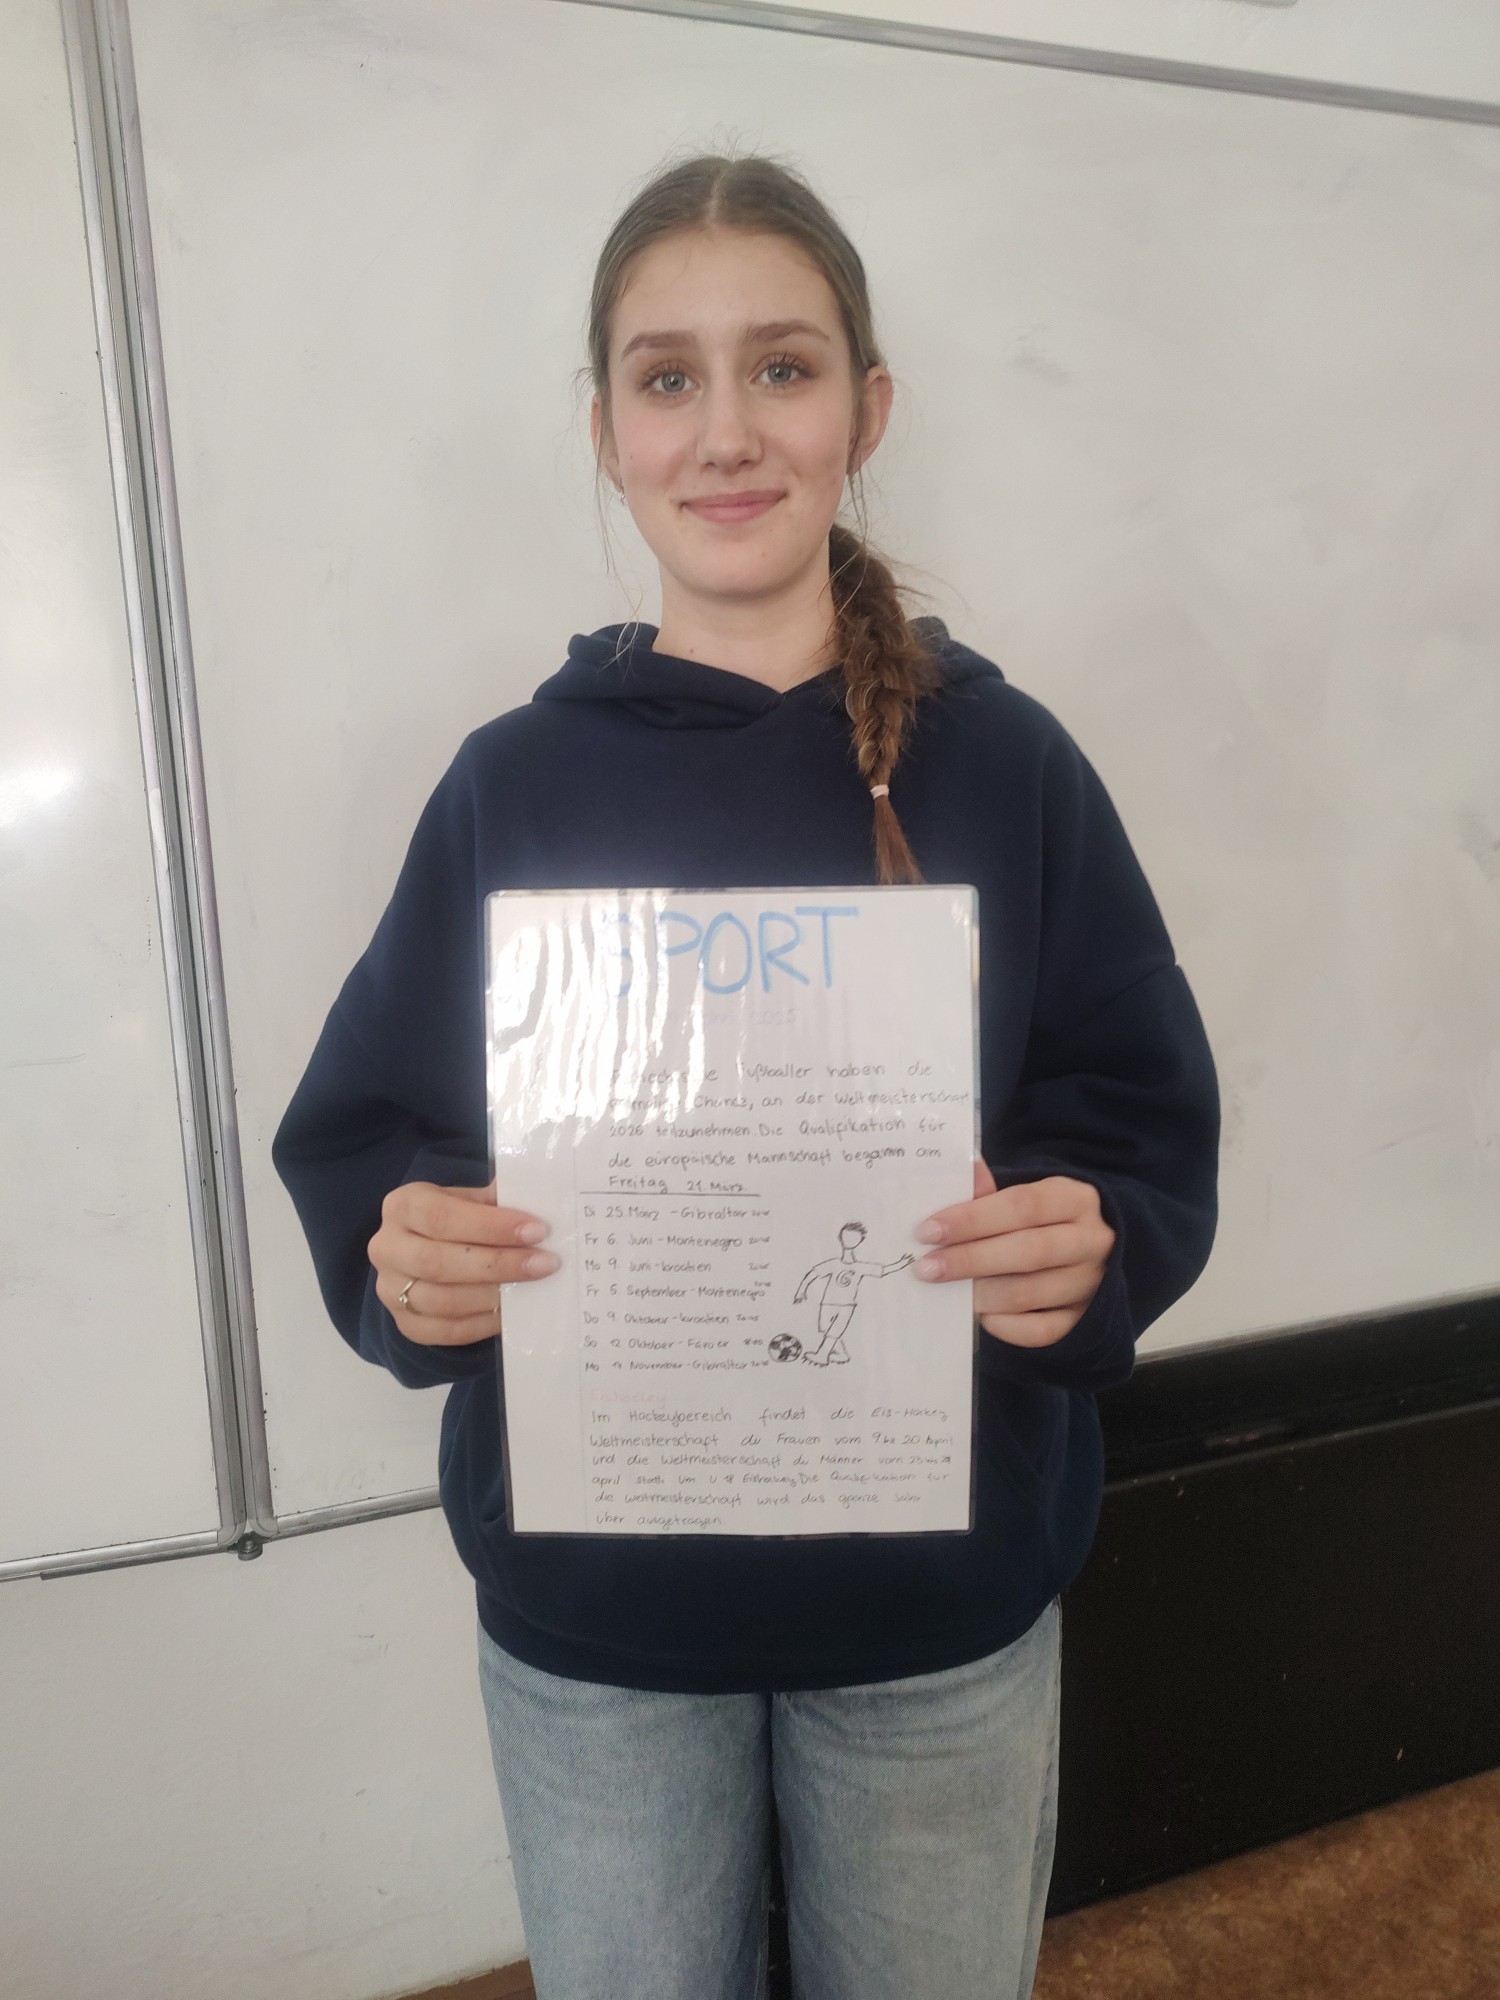 SPORT
2025
Fußballer haben die
Chance, an der Weltmeisterschaft
2026 teilzunehmen. Die Qualifikation für
die europäische Mannschaft begann am
Freitag 21. März
Di 25. März - Gibraltar
Fr 6. Juni - Montenegro
Mo 9. Juni - Kroatien
Fr 5. September - Montenegro
Do 9. Oktober - Kroatien
So 12 Oktober - Färöer
Mo November - Gibraltar
Eishockey
Im Hockeybereich findet die Eis-Hockey
Weltmeisterschaft du Frauen vom 9 bis 20 April
und die Weltmeisterschaft du Männer vom 23
april statt. Um U 18 Eishockey. Die Qualifikation für
die Weltmeisterschaft wird das ganze Jahr
über ausgetragen.